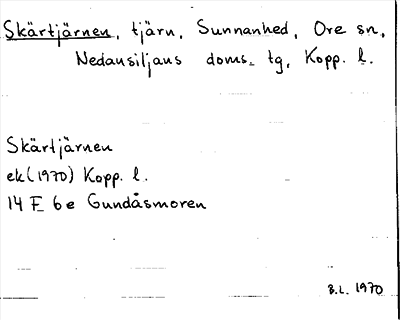 Skärtjärnen, tjärn, Sunnanhed, Ore sn,
Nedansiljans doms. tg, Kopp. l.
Skärtjärnen
ek (1970) Kopp. l.
14 F 6 e Gundåsmoren
B.L. 1970